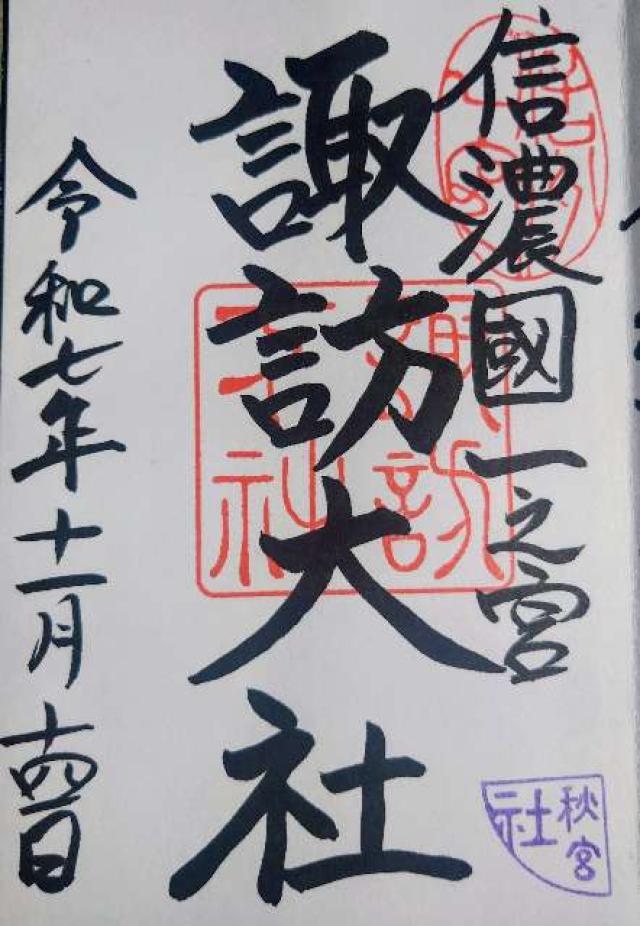 信濃國一之宮
諏訪大社
令和七年十一月十四日
諏訪
大社
秋宮
社